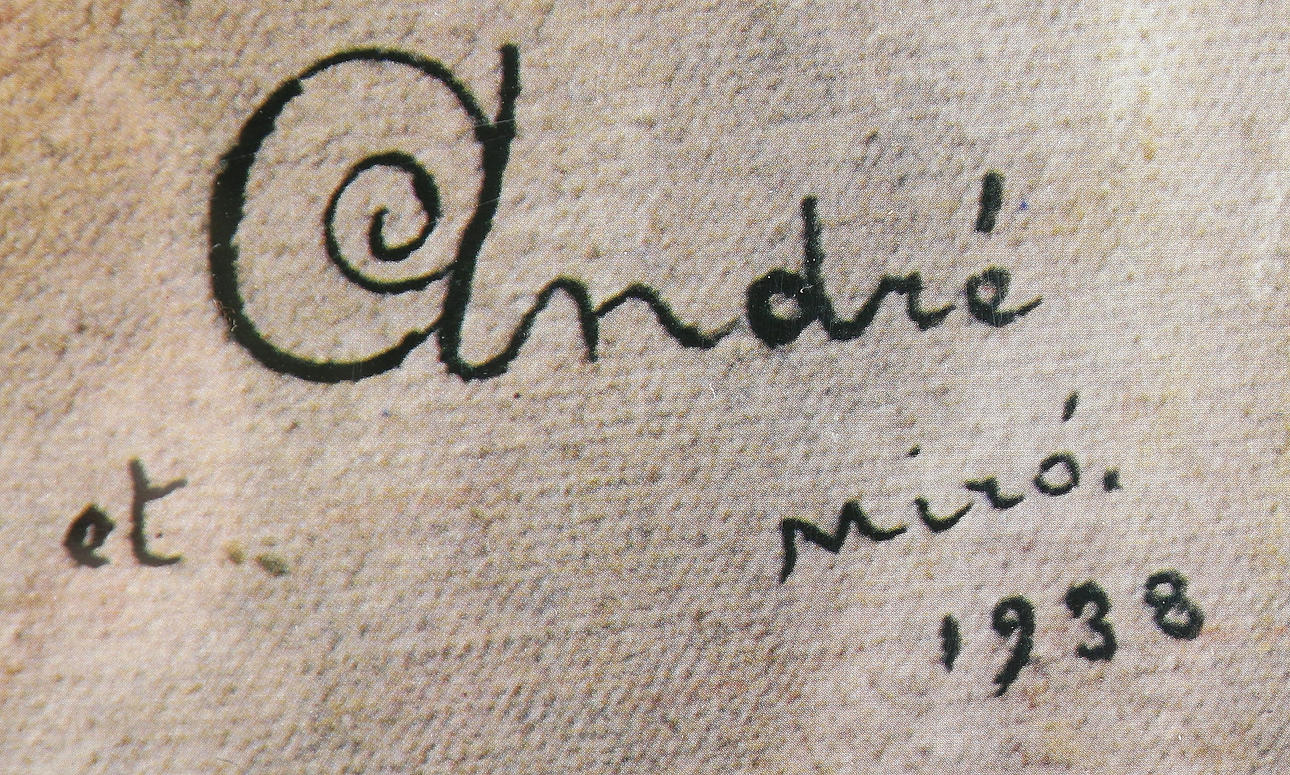 André
et
Miró.
1938